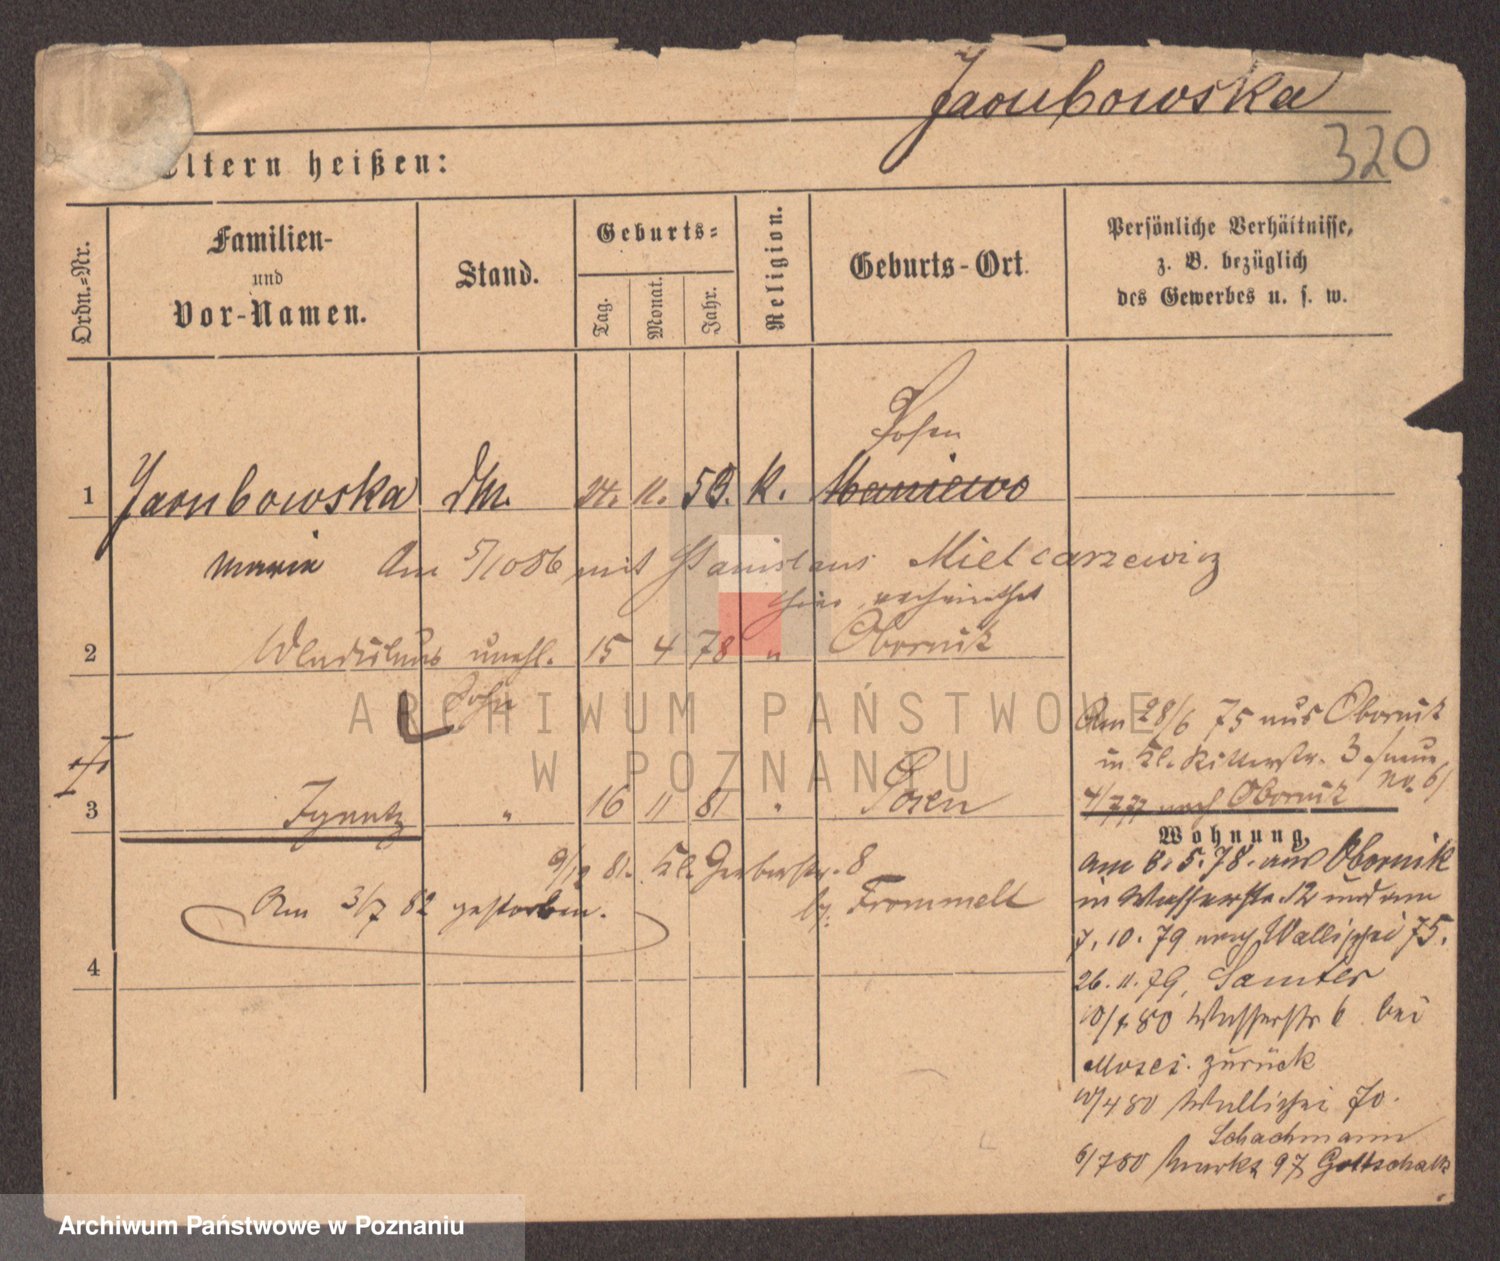 Jakubowska
320
Eltern heißen:
Ordn.-Nr.
Familien-
und
Vor-Namen.
Stand.
Geburts-
Tag.
Monat.
Jahr.
Religion.
Geburts-Ort.
Persönliche Verhältnisse,
z. B. bezüglich
des Gewerbes u. s. w.
Posen
1 Jakubowska 24. 11. 59. k. Maniewo
Maria Am 5/10 86 mit Stanislaus Mielcarzewicz
hier verheirathet
2 Wladislaus unehl. 15 4 78 " Obornik
Sohn
Am 28/6 75 aus Obornik
in Kl. Ritterstr. 3
3 Ignatz " 16 11 81 " Posen
4/7 77 nach Obornik
Wohnung.
9/12 81. Kl. Gerberstr. 8
Am 3/7 82 gestorben. Frommelt
am 6. 5. 78. aus Obornik
in Wasserstr. 12 und am
7. 10. 79 nach Wallischei 75.
4
26. 11. 79, Samter
Wasserstr 6 bei
Moses. zurück
10/4 80 Wallischei 70.
Schachmann
6/7 80 Markt 97 Gottschalk
ARCHIWUM PAŃSTWOWE
W POZNANIU
Archiwum Państwowe w Poznaniu